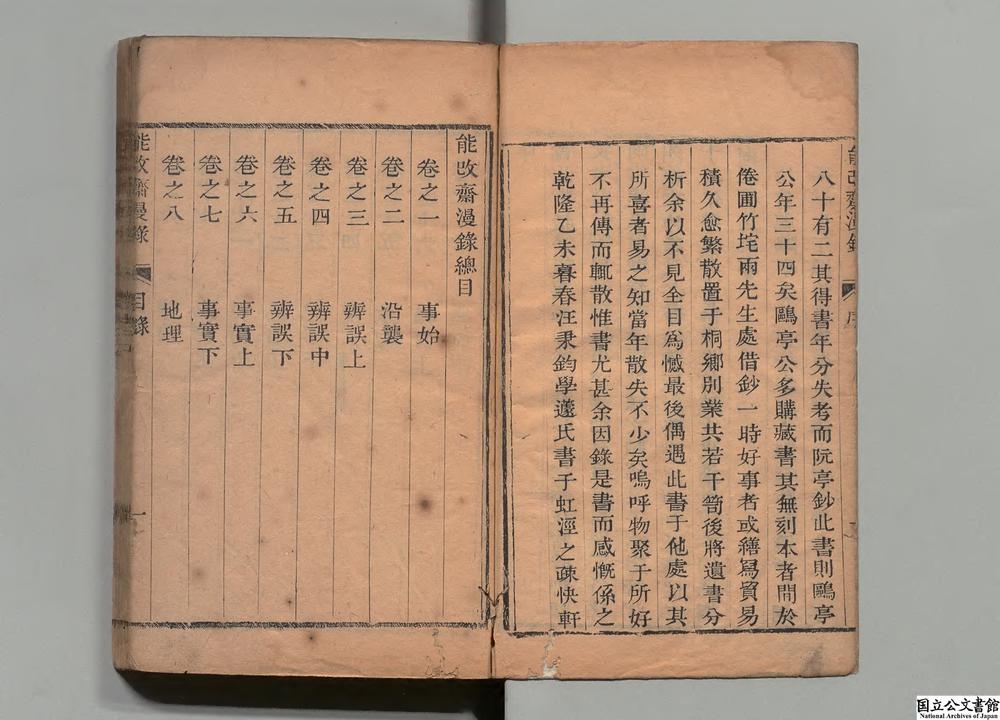 能改齋漫錄
序
八十有二其得書年分失考而阮亭鈔此書則鷗亭
公年三十四矣鷗亭公多購藏書其無刻本者間於
倦圃竹垞兩先生處借鈔一時好事者或繕寫貿易
積久愈繁散置于桐鄉別業共若干笥後將遺書分
析余以不見全目爲憾最後偶遇此書于他處以其
所喜者易之知當年散失不少矣嗚呼物聚于所好
不再傳而輒散惟書尤甚余因錄是書而感慨係之
乾隆乙未暮春汪秉鈞學薳氏書于虹涇之疎快軒
能改齋漫錄總目
卷之一 事始
卷之二 沿襲
卷之三 辨誤上
卷之四 辨誤中
卷之五 辨誤下
卷之六 事實上
卷之七 事實下
卷之八 地理
能改齋漫錄
目錄
一
国立公文書館
National Archives of Japan